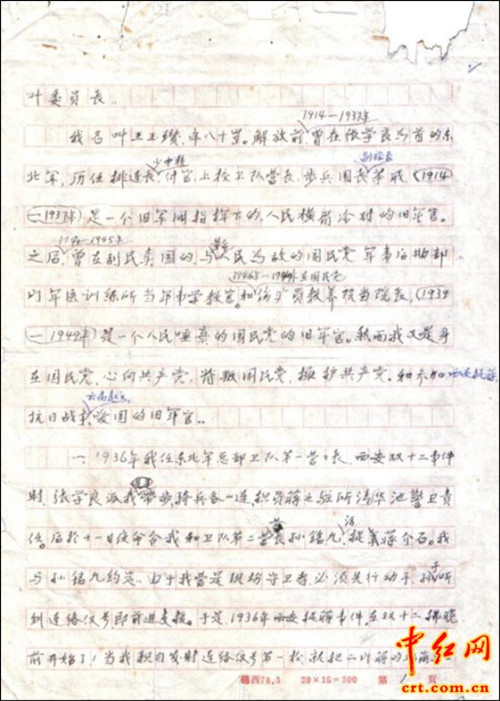 叶委员长
1914—1937年
我名叫王玉瓒,年八十岁。解放前,曾在张学良为首的东
少中校 副团长
北军,历任排连长、上校卫队营长、步兵团长等职(1914
—1937年)是一个旧军阀指挥下的,人民横眉冷对的旧军官。
之后,曾在到民卖国的,与人民为敌的国民党军事后勤部
的军医训练所当军事学教官和伤员教养院当院长,(1939
—1949年)是一个人民唾弃的国民党的旧军官。然而我又是身
在国民党,心向共产党,背叛国民党,拥护共产党。和参加
抗日战争爱国的旧军官..
一、1936年我任东北军总部卫队第一营营长,西安双十二事件
时,张学良派我带步骑兵各一连担负蒋之驻所清华池警卫责
任。后于十一日使命令我和卫队第二营长孙铭九,捉蒋介石。我
与孙铭九约定,由于我营是现场守卫者,必须先行动手,孙听
到连络信号即前进支援。于是,1936年西安捉蒋事件在双十二拂晓
前开始了!当我亲自发射连络信号第一枪,就把二门蒋的
西78.3 20×15=300 第1页
中红网
crt.com.cn